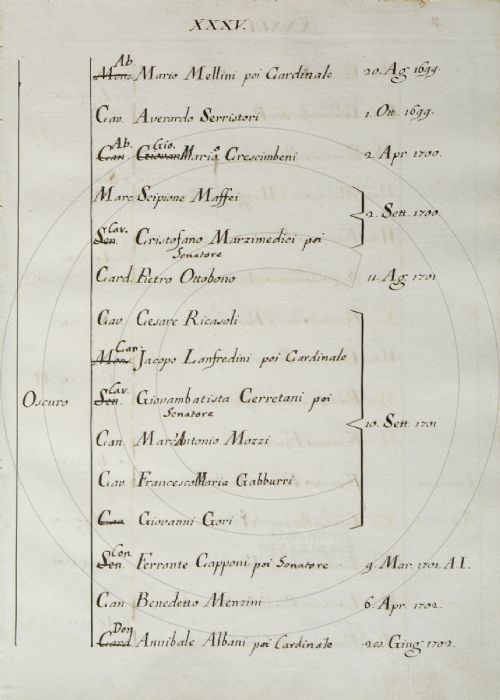 XXXV.
Ab.
Mons. Mario Mellini poi Cardinale 20. Ag. 1699.
Cav. Averardo Serristori 1. Ott. 1699.
Ab. Gio.
Can. Giovan Mario Crescimbeni 2. Apr. 1700.
Marc. Scipione Maffei
2. Sett. 1700.
Cav.
Sen. Cristofano Marzimedici poi
Senatore
Card. Pietro Ottobono 11. Ag. 1701
Cav. Cesare Ricasoli
Can.
Mons. Jacopo Lanfredini poi Cardinale
Cav.
Oscuro Sen. Giovambatista Cerretani poi
Senatore
10. Sett. 1701
Can. Marc'Antonio Mozzi
Cav. Francesco Maria Gabburri
Can. Giovanni Gori
Con.
Sen. Ferrante Capponi poi Senatore 9. Mar. 1701. A.I.
Can. Benedetto Menzini 6. Apr. 1702.
Don
Card. Annibale Albani poi Cardinale Giug. 1702.